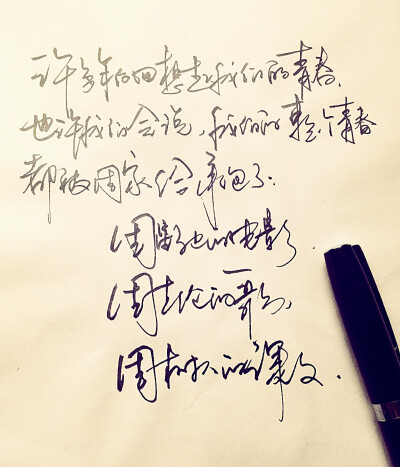 许多年后回想起我们的青春,
也许我们会说,我们的整个青春
都被周家给承包了:
周星驰的电影,
周杰伦的歌,
周树人的课文.